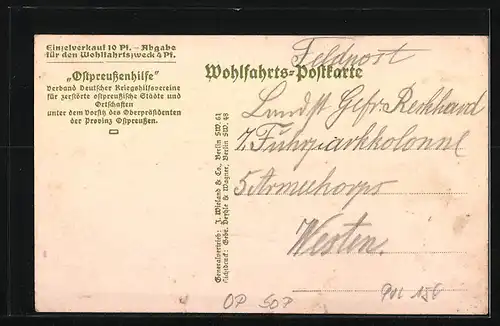 Einzelverkauf 10 Pf. – Abgabe
für den Wohlfahrtszweck 4 Pf.
„Ostpreußenhilfe"
Verband Deutscher Kriegshilfsvereine
für zerstörte ostpreußische Städte und
Ortschaften
unter dem Vorsitz des Oberpräsidenten
der Provinz Ostpreußen.
Feldpost
Wohlfahrts-Postkarte
Landst. Gefr. Reckhard
7. Fuhrparkkolonne
5 Armeekorps
Westen.
Generalvertrieb: J. Wieland & Co., Berlin SW. 61
Lichtdruck: Gebr. & Wagner, Berlin SW. 48
OP SOP
POL 156